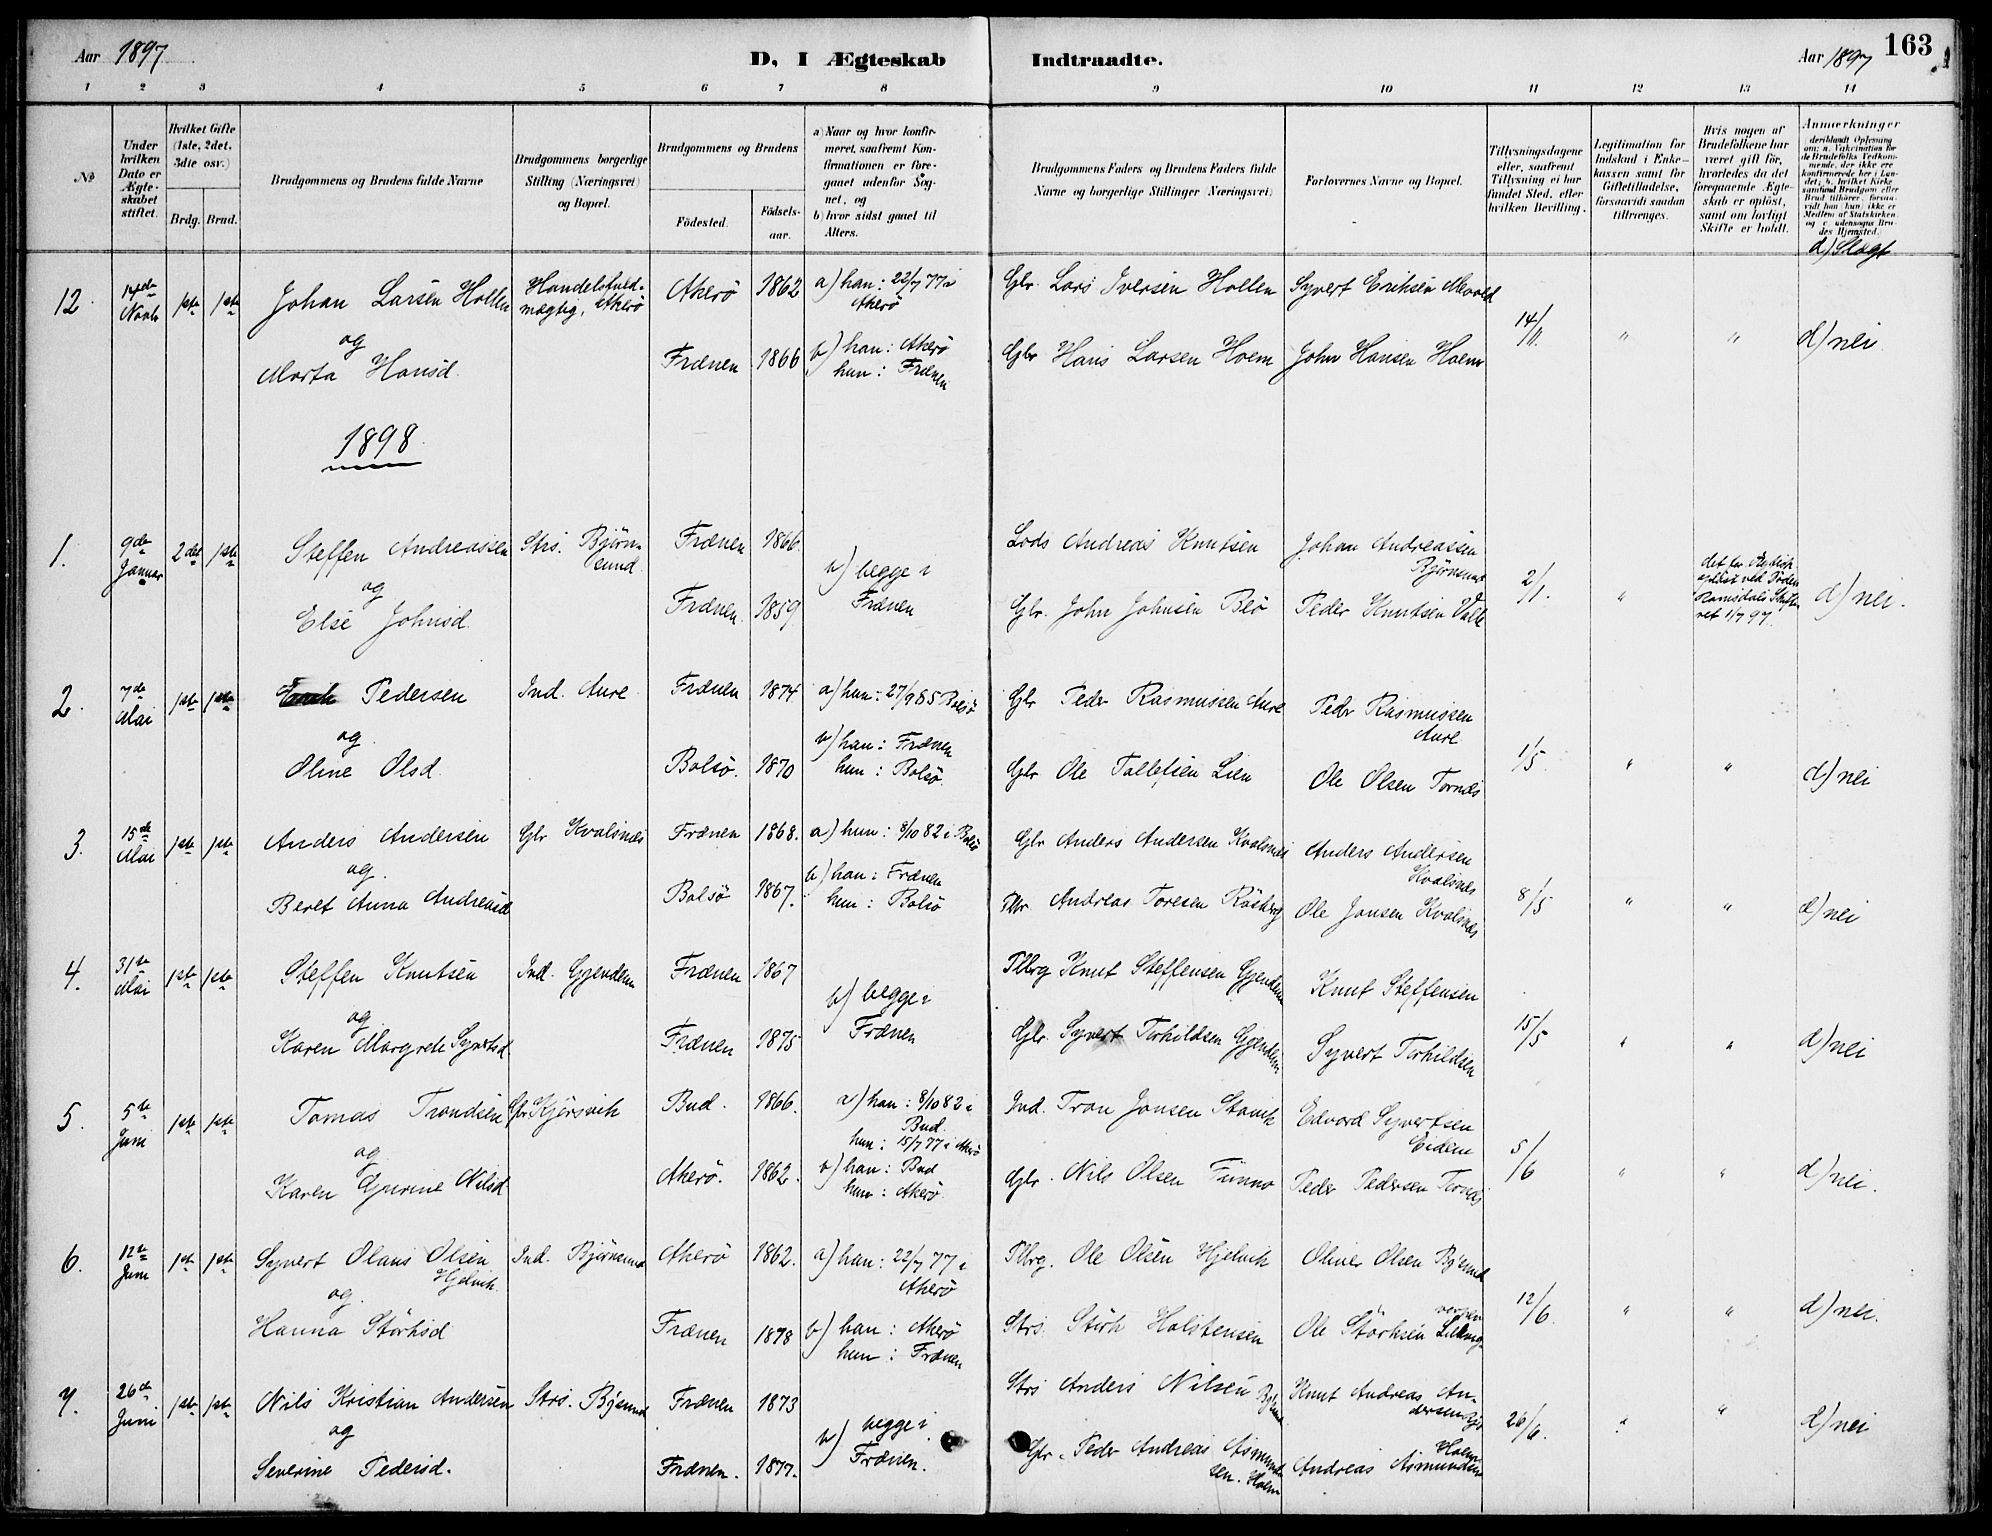 Aar 1897
D, I Ægteskab Indtraadte.
Aar 1897 163
1 2 3 4 5 6 7 8 9 10 11 12 13 14
№
Under hvilken Dato er Ægteskabet stiftet.
Hvilket Gifte (1ste, 2det, 3die osv.)
Brdg. Brud.
Brudgommens og Brudens fulde Navne
Brudgommens borgerlige Stilling (Næringsvei) og Bopæl.
Brudgommens og Brudens
Födested. Födsels-aar.
a) Naar og hvor konfirmeret, saafremt Konfirmationen er foregaaet udenfor Sognet, og
b) hvor sidst gaaet til Alters.
Brudgommens Faders og Brudens Faders fulde Navne og borgerlige Stillinger Næringsvei)
Forlovernes Navne og Bopæl.
Tillysningsdagene eller, saafremt Tillysning ei har fundet Sted, efter hvilken Bevilling.
Legitimation for Indskud i Enkekassen samt for Giftetilladelse, forsaavidt saadan tiltrænges.
Hvis nogen af Brudefolkene har været gift för, hvorledes da det foregaaende Ægteskab er oplöst, samt om lovligt Skifte er holdt.
Anmærkninger
d) Slægt
12. 14de Novb 1ste 1ste Johan Larsen Hollen Handelsfuldmægtig, Akerö Akerö 1862 a) han: 22/7 77 i Akerö Gbr. Lars Iversen Hollen Syvert Eriksen Mevold
og 14/11. " " d) nei
Marta Hansd. Frænen 1866 b) han: Akerö hun: Frænen Gbr Hans Larsen Hoem John Hansen Hoem
1898.
1. 9de Januar 2det 1ste Steffen Andreassen Strs. Björnsund Frænen 1866. Lods Andreas Knutsen Johan Andreassen Björnsund
og b) begge i Frænen 2/1. "
Else Johnsd. Frænen 1859 Gbr. John Johnsen Beö Peder Knutsen Valle d) nei.
2. 7de Mai 1ste 1ste Pedersen Ind. Aure Frænen 1874 a) hun: 27/9 85 Bolsö Gbr Peder Rasmussen Aure Peder Rasmussen Aure
og b) han: Frænen hun: Bolsö. 1/5. " " d) nei
Oline Olsd. Bolsö. 1870 Gbr Ole Tollefsen Lien Ole Olsen Tornes
3. 15de Mai 1ste 1ste Anders Andersen Gbr Kvalsnes Frænen 1868. a) hun: 8/10 82 i Bolsö Gbr Anders Andersen Kvalsnes Anders Andersen Kvalsnes
og b) han: Frænen hun: Bolsö 8/5 " " d) nei
Beret Anna Andreasd Bolsö 1867. Andreas Toresen Ole Jonsen Kvalsnes
4. 31te Mai 1ste 1ste Steffen Knutsen Ind. Gjendem Frænen 1867 Pllbrg Knut Steffensen Gjendem Knut Steffensen
og b) begge i Frænen 15/5 " " d) nei
Karen Margrete Syvertsd. Frænen 1875 Gbr. Syvert Torkildsen Gjendem Syvert Torkildsen
5. 5te Juni 1ste 1ste Tomas Trondsen Gbr Kjörsvik Bud. 1866. a) han: 8/10 82 i Bud. hun: 15/7 77 i Akerö Ind. Tron Jonsen Stavik Edvard Syvertsen Eidem
og b) han: Bud hun: Akerö. 5/6 " " d) nei.
Karen Gurine Nilsd. Akerö. 1862. Gbr. Nils Olsen Peder Pedersen Tornes
6. 12te Juni 1ste 1ste Syvert Olaus Olsen Hjelvik Ind. Björnsund Akerö 1862. a) han: 22/7 77 i Akerö Pllbrg. Ole Olsen Hjelvik Oliver Olsen Bjsund
og. 12/6. " " d) nei.
Hanna Störksd Frænen 1878 b) han: Akerö hun: Frænen Strs. Störk Holstensen Ole Störksen
7. 26de Juni 1ste 1ste Nils Kristian Andersen Strs. Bjsund Frænen 1873 Strs Anders Nilsen Bjsund Knut Andreas Andersen
og b) begge i Frænen. 26/6. " " d) nei
Severine Pedersd. Frænen. 1877. Gbr. Peder Andreas Asmundsen. Hoem Andreas Asmundsen Hoem